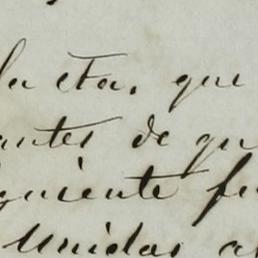 la eta, que
antes de qu
guiente fu
Unidos a